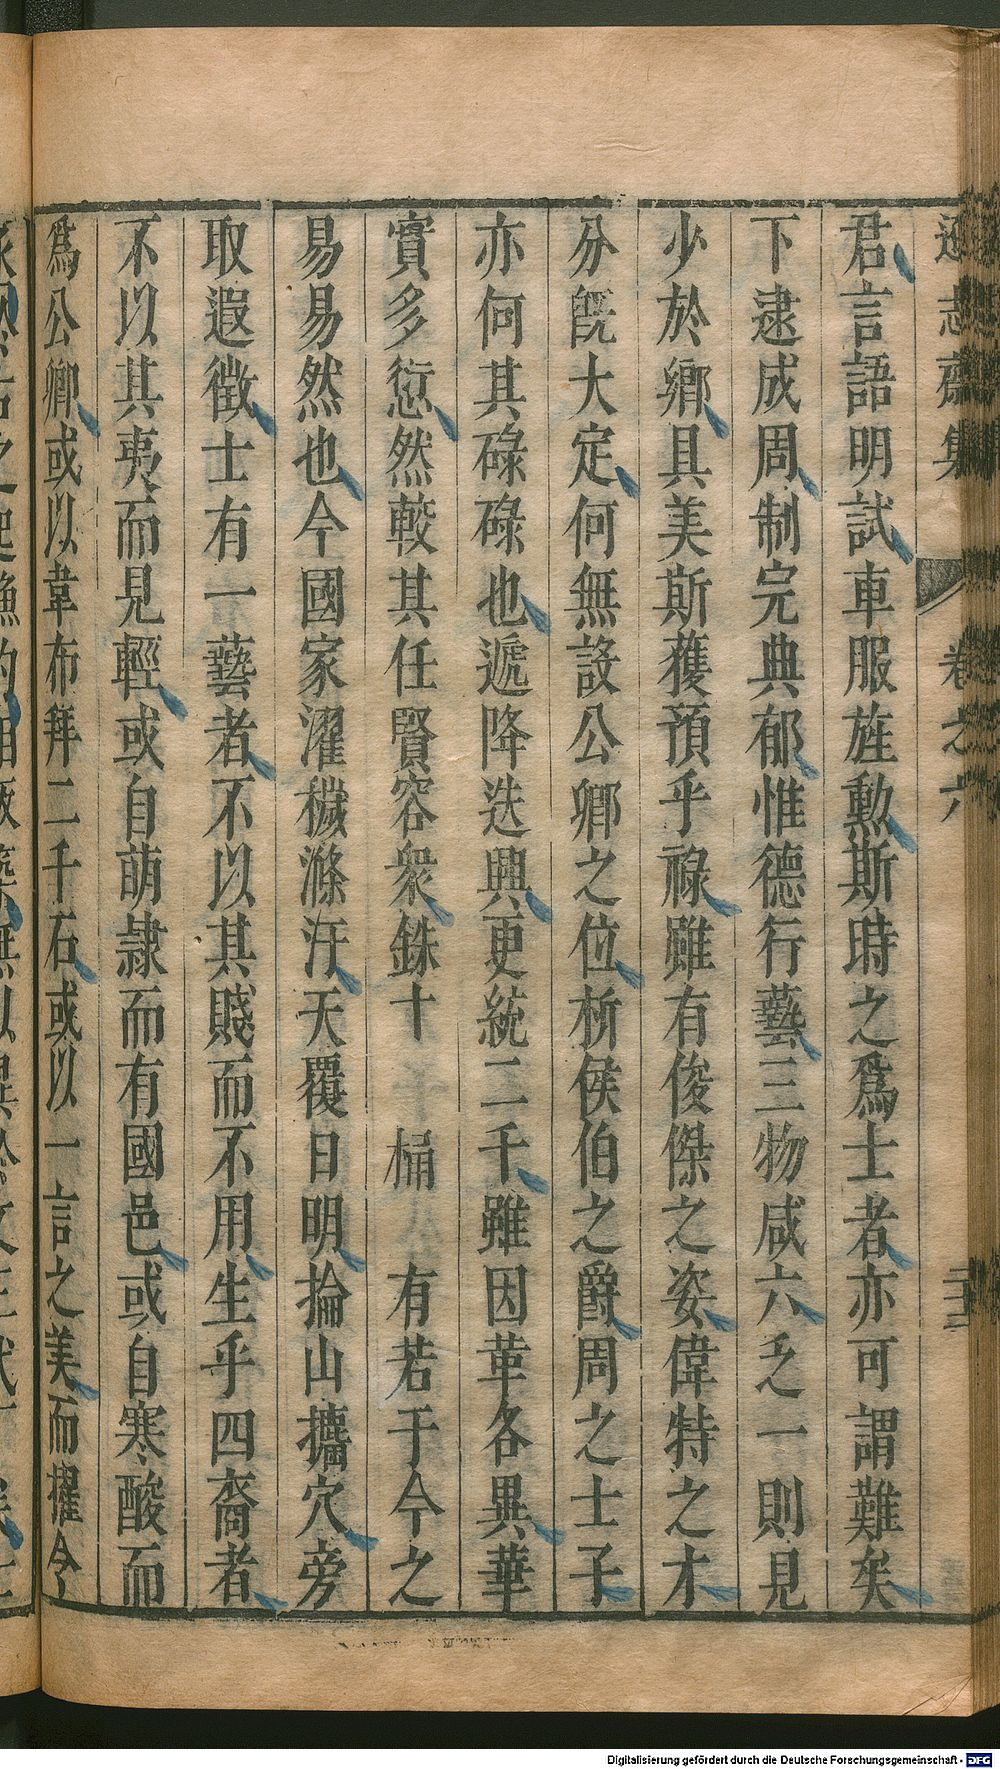 遜志齋集 卷之六
君言語明試車服旌勲斯時之爲士者亦可謂難矣
下逮成周制完典郁惟德行藝三物咸六乏一則見
少於鄉具美斯獲預乎祿雖有俊傑之姿偉特之才
分既大定何無設公卿之位析侯伯之爵周之士子
亦何其碌碌也遞降迭興更統二千雖因革各異華
實多愆然較其任賢容衆銖十 桶 有若于今之
易易然也今國家濯穢滌汙天覆日明掄山擂穴旁
取遐徵士有一藝者不以其賤而不用生乎四裔者
不以其夷而見輕或自萌隷而有國邑或自寒酸而
爲公卿或以韋布拜二千石或以一言之美而擢今
Digitalisierung gefördert durch die Deutsche Forschungsgemeinschaft - DFG